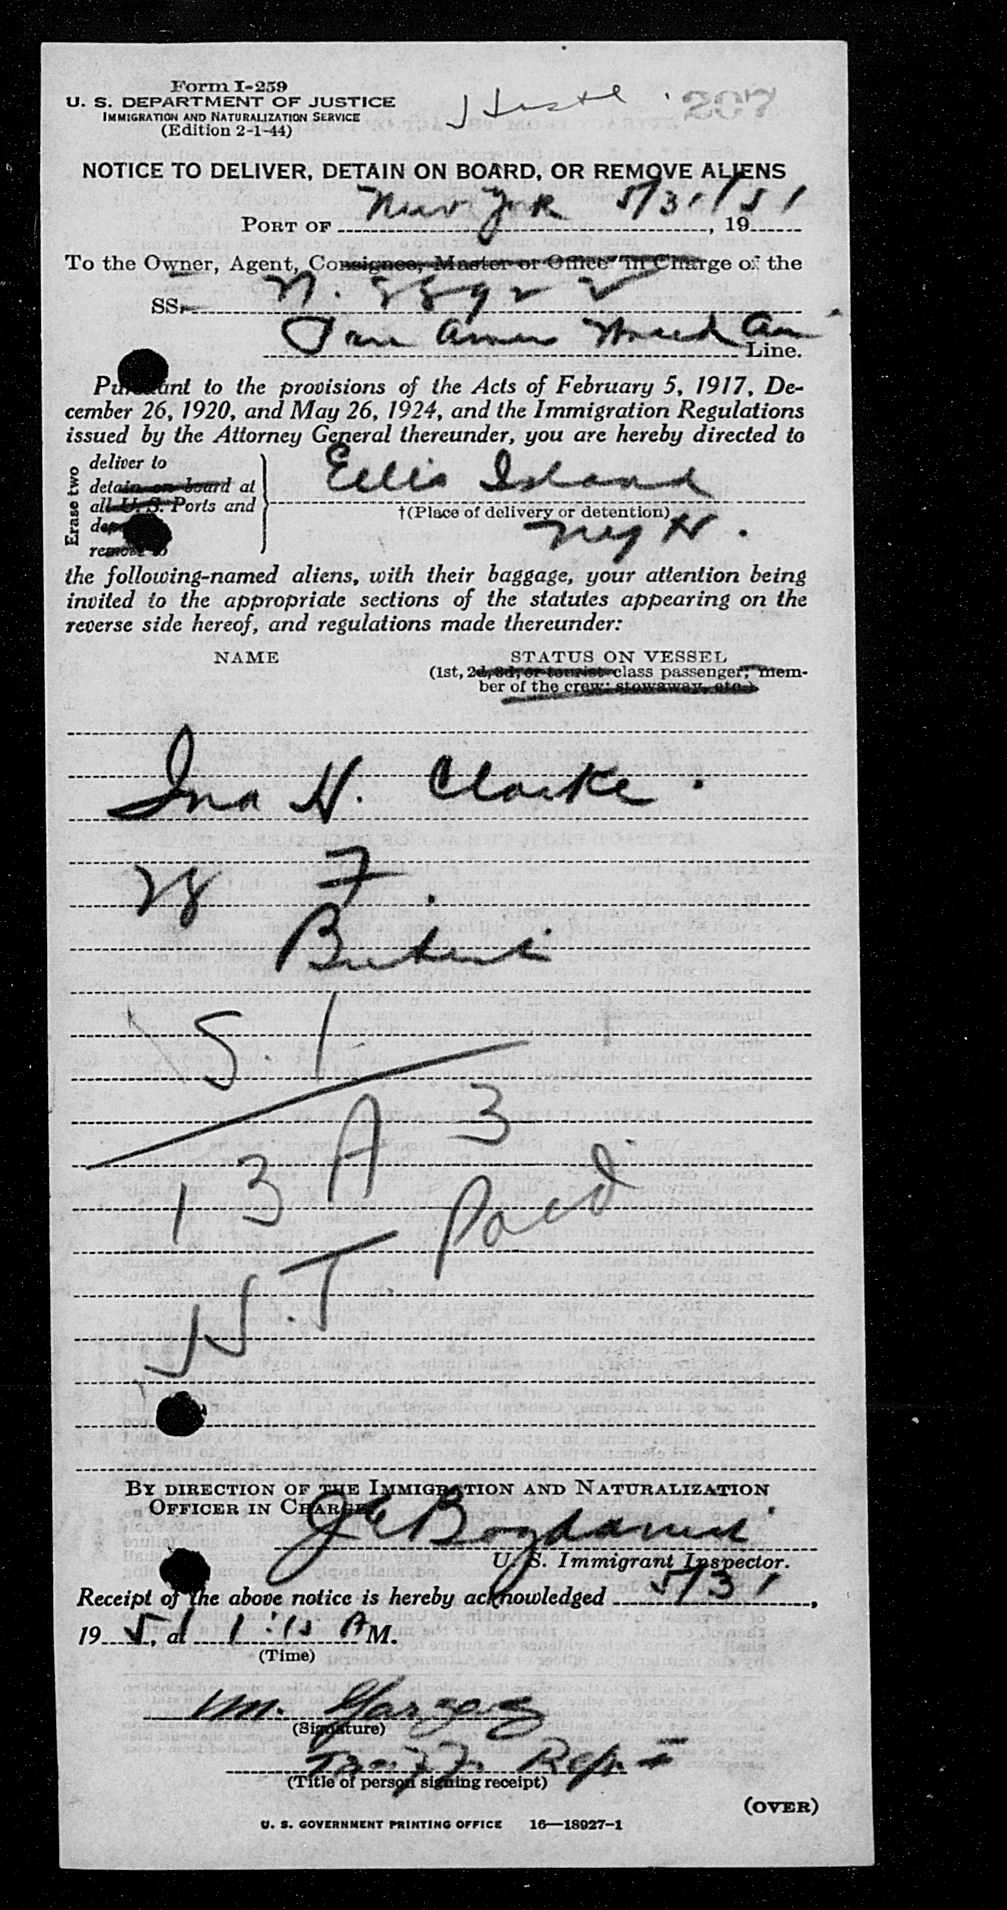 Form I-259
U. S. DEPARTMENT OF JUSTICE
IMMIGRATION AND NATURALIZATION SERVICE
(Edition 2-1-44)
207
NOTICE TO DELIVER, DETAIN ON BOARD, OR REMOVE ALIENS
PORT OF New York 5/31/51, 19
To the Owner, Agent, Consignee, Master or Officer in Charge of the
SS. N.
Pan Amer World Air Line.
Pursuant to the provisions of the Acts of February 5, 1917, De-
cember 26, 1920, and May 26, 1924, and the Immigration Regulations
issued by the Attorney General thereunder, you are hereby directed to
Erase two
deliver to
detain on board at
all U. S. Ports and
remove to
Ellis Island
†(Place of delivery or detention)
NY H.
the following-named aliens, with their baggage, your attention being
invited to the appropriate sections of the statutes appearing on the
reverse side hereof, and regulations made thereunder:
NAME
STATUS ON VESSEL
(1st, 2d, 3d, or tourist class passenger, mem-
ber of the crew; stowaway, etc.)
Ina H. Clarke.
F.
S. I.
A 3
13
Paid
N.T
BY DIRECTION OF THE IMMIGRATION AND NATURALIZATION
OFFICER IN CHARGE
U. S. Immigrant Inspector.
Receipt of the above notice is hereby acknowledged 5/31,
1951, at 1:15 A M.
(Time)
(Signature)
Traff. Rep.
(Title of person signing receipt)
(OVER)
U. S. GOVERNMENT PRINTING OFFICE 16—18927-1